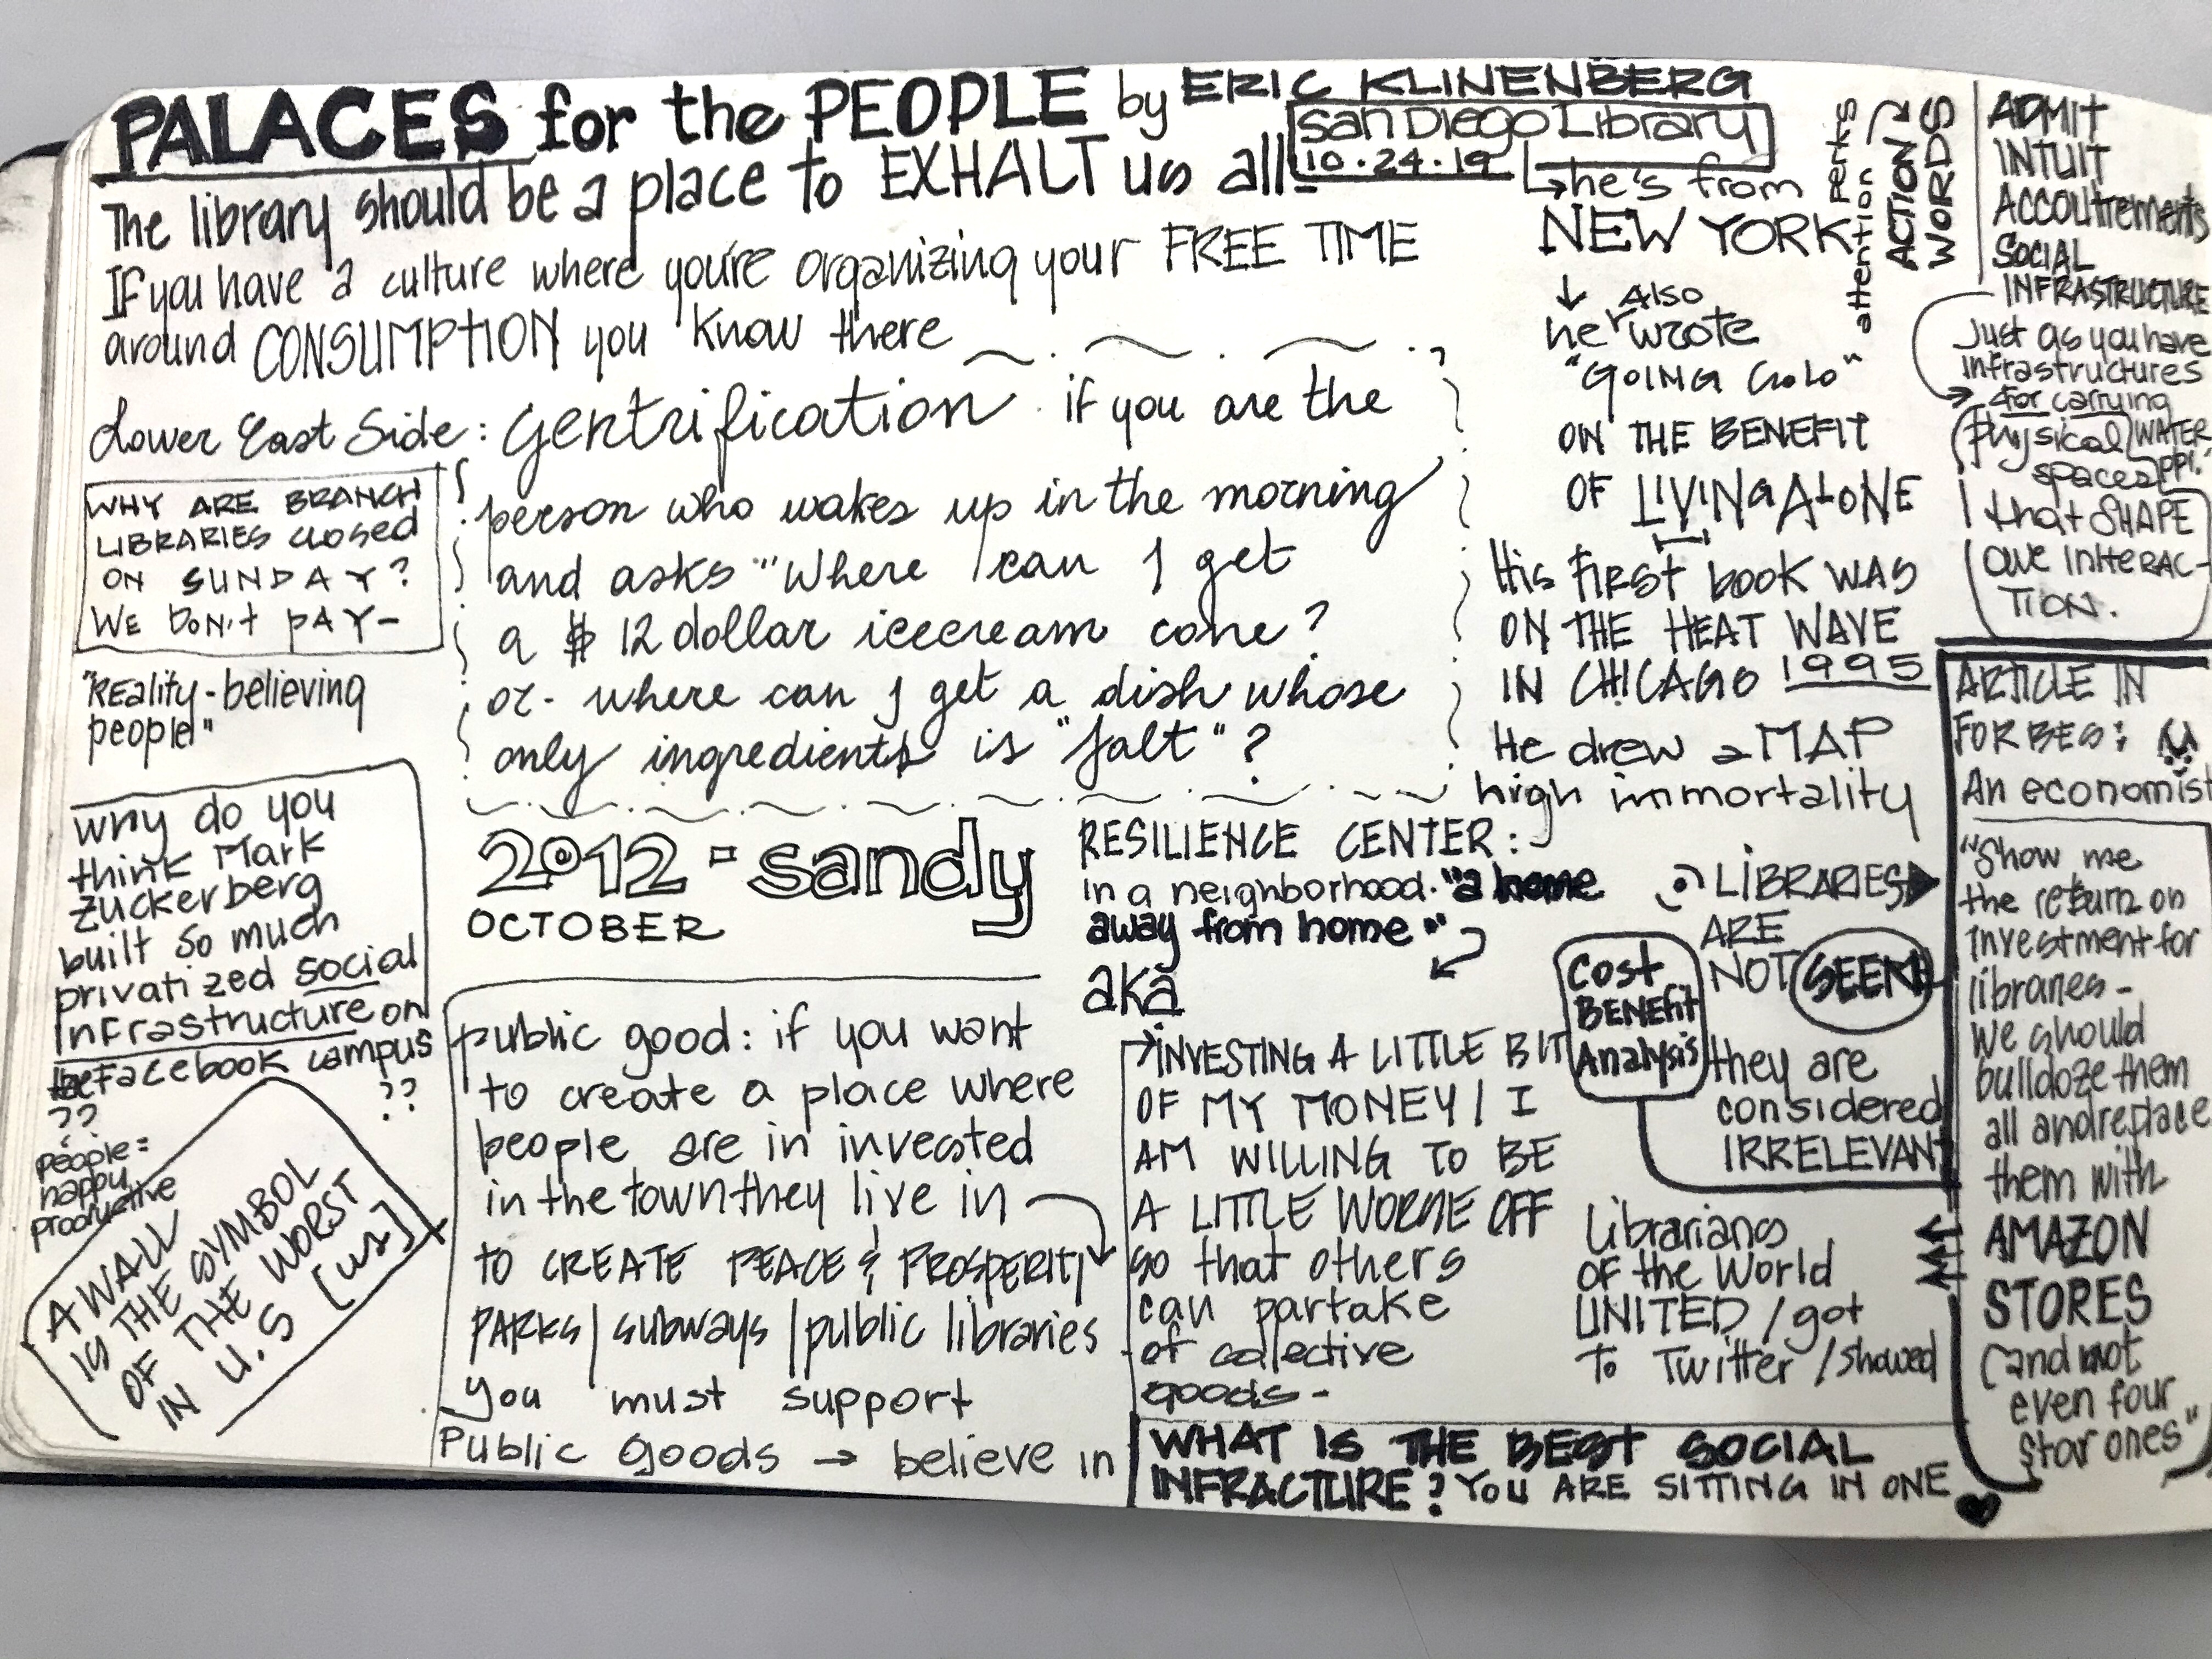 PALACES for the PEOPLE by ERIC KLINENBERG
San Diego Library
10.24.19
The library should be a place to EXHALT us all-
If you have a culture where you're organizing your FREE TIME
around CONSUMPTION you know there
Lower East Side: Gentrification if you are the
person who wakes up in the morning
and asks "Where can I get
a $12 dollar icecream cone?
or- where can I get a dish whose
only ingredients is "salt"?
WHY ARE BRANCH
LIBRARIES CLOSED
ON SUNDAY?
WE DON't PAY-
"Reality-believing
people"
Why do you
think Mark
Zuckerberg
built so much
privatized social
infrastructure on
the Facebook campus
??
??
people=
happy
productive
A WALL
IS THE SYMBOL
OF THE WORST
IN U.S [us]
2012 - Sandy
OCTOBER
public good: if you want
to create a place where
people are in invested
in the town they live in
to CREATE PEACE & PROSPERITY
PARKS / subways / public libraries
you must support
Public goods → believe in
he's from
NEW YORK
↓ Also
he wrote
"GOING SOLO"
ON THE BENEFIT
OF LIVING ALONE
His first book WAS
ON THE HEAT WAVE
IN CHICAGO 1995
He drew a MAP
high immortality
RESILIENCE CENTER:
in a neighborhood. "a home
away from home."
aka
INVESTING A LITTLE BIT
OF MY MONEY / I
AM WILLING TO BE
A LITTLE WORSE OFF
so that others
can partake
of colective
goods-
Cost
BENEFIT
Analysis
LIBRARIES
ARE
NOT SEEN
they are
considered
IRRELEVANT
Librarians
OF the World
UNITED / got
To Twitter / showed
WHAT IS THE BEST SOCIAL
INFRACTURE? YOU ARE SITTING IN ONE
attention perks
ACTION
WORDS
ADMIT
INTUIT
Accoutrements
SOCIAL
INFRASTRUCTURE
Just as you have
infrastructures
for carrying
physical WATER
spaces ppl.
that SHAPE
our INTERAC-
TION.
ARTICLE IN
FORBES:
An economist
"Show me
the return on
investment for
libraries-
we should
bulldoze them
all and replace
them with
AMAZON
STORES
(and not
even four
star ones"